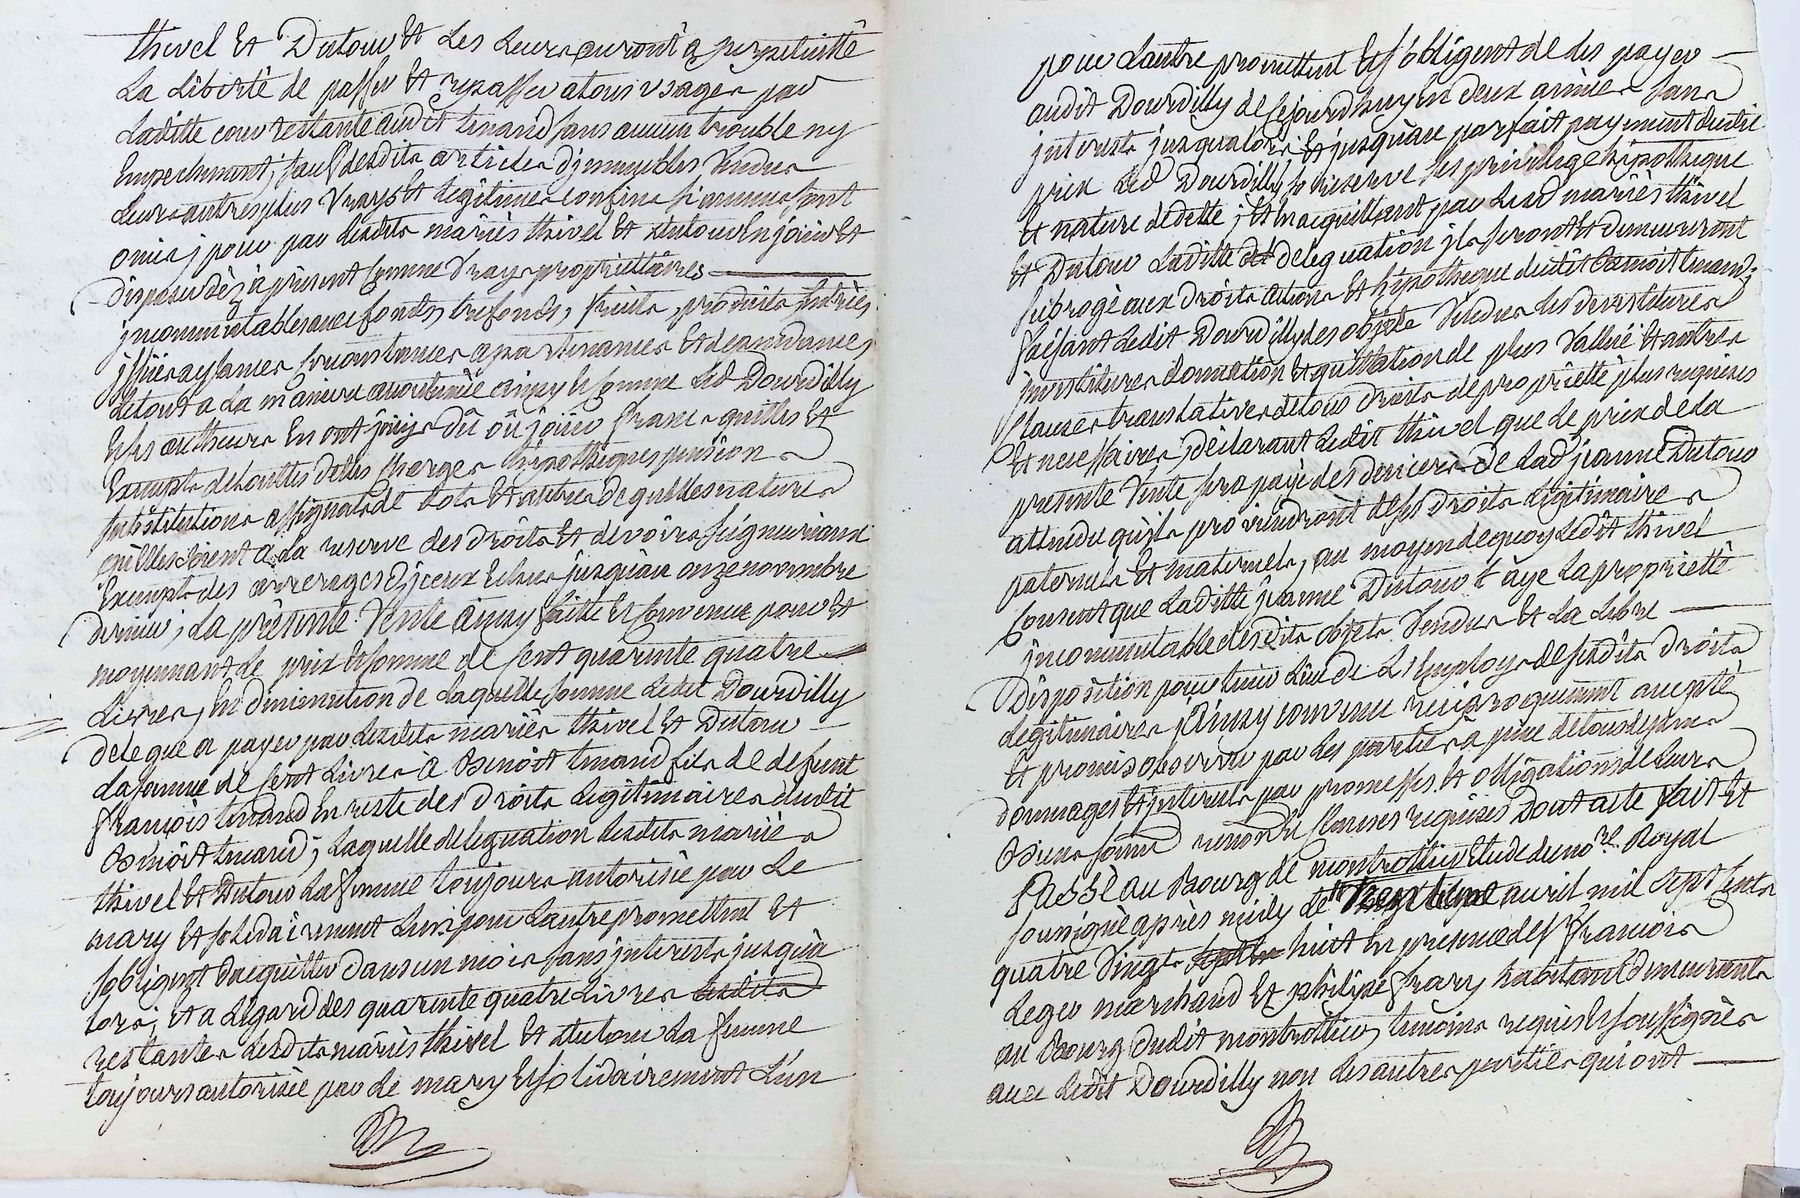 thivel Et Dutour Et Les Leurs auront a perpetuitté
La Liberté de passer Et repasser a tous usages par
Laditte cour restante audit tmand sans aucun trouble ny
Empechement, sauf desdits articles d'jmmeubles Vendus
Leurs autres plus Vrays Et Legitimes confins si aucuns sont
omis; pour par Lesdits mariés thivel Et Dutour En joüir Et
disposer dès a présent comme Vrays proprietaires
jncommutables avec fonds, trefonds, fruits, produits, Entrées
jssües aysances circonstances apartenances Et dependances,
Le tout a La maniere accoutumée ainsy Et comme Led Dourdilly
Et ses autheurs En ont joüy, dû où joüir francs quittes Et
Exempts de touttes dettes charges hypotheques pension
substitutions assignats de dots Et autres de quelles natures
qu'elles soient a La reserve des droits Et devoirs seigneuriaux
Exempts des arrerages d'jceux Echus jusqu'au onze novembre
dernier; La présente Vente ainsy faitte Et convenue pour Et
moyennant Le prix Et somme de cent quarente quatre
Livres, En diminution de Laquelle somme Ledit Dourdilly
delegue a payer par Lesdits mariés thivel Et Dutour
La somme de cent Livres a Benoit tmand fils de defunt
françois tmand En reste des droits Legitimaires dudit
Benoit tmand; Laquelle deleguation Lesdits mariés
thivel Et Dutour La femme toujours autorisée par Le
mary Et solidairement L'un pour L'autre promettent Et
s'obligent d'acquitter dans un mois sans jnterests jusqu'a
lors; Et a L'egard des quarente quatre Livres Lesdits
restantes Lesdits mariés thivel Et Dutour La femme
toujours autorisée par Le mary Et solidairement L'un
pour L'autre promettent Et s'obligent de Les payer
audit Dourdilly de cejourd'huy En deux années sans
jnterests jusqu'alors; Et jusqu'au parfait payement dudit
prix Led Dourdilly se reserve ses privilege hipotheque
Et nature de dette; Et En acquittant par Lesd mariés thivel
Et Dutour Laditte deleguation jls seront Et demeureront
subrogé aux droits actions Et hipotheque dudit Benoit tmand;
faisant Ledit Dourdilly des objets Vendus Les devestitures
jnvestitures donnation Et quittation de plus Valleüe Et autres
Clauses translatives de tous droits de proprietté plus requises
Et necessaires; déclarant Ledit thivel que Le prix de La
presente Vente sera payé des deniers de Lad jeanne Dutour
attendu qu'ils proviendront de ses droits Legitimaires
paternels Et maternels, au moyen de quoy Ledit thivel
consent que Laditte jeanne Dutour aye La proprietté
jncommutable desdits objets Vendus Et La Libre
Disposition pour tenir Lieu de L'Employ de sesdits droits
Legitimaires; Ainsy convenu reciproquement accepté
Et promis observer par Les parties a peine de tous depens
dommages Et jnterests par promesses Et obligations de Leurs
Biens soumis renond Et clauses requises Dont acte fait Et
Passé au Bourg de montrottier Etude du no.re Royal
soussigné après midy Le avril mil sept cents
quatre Vingts huit En présence de sr François
Leger marchand Et philipe frary habitant demeurants
au Bourg dudit montrottier, temoins requis Et soussignés
avec Ledit Dourdilly non Les autres parties qui ont